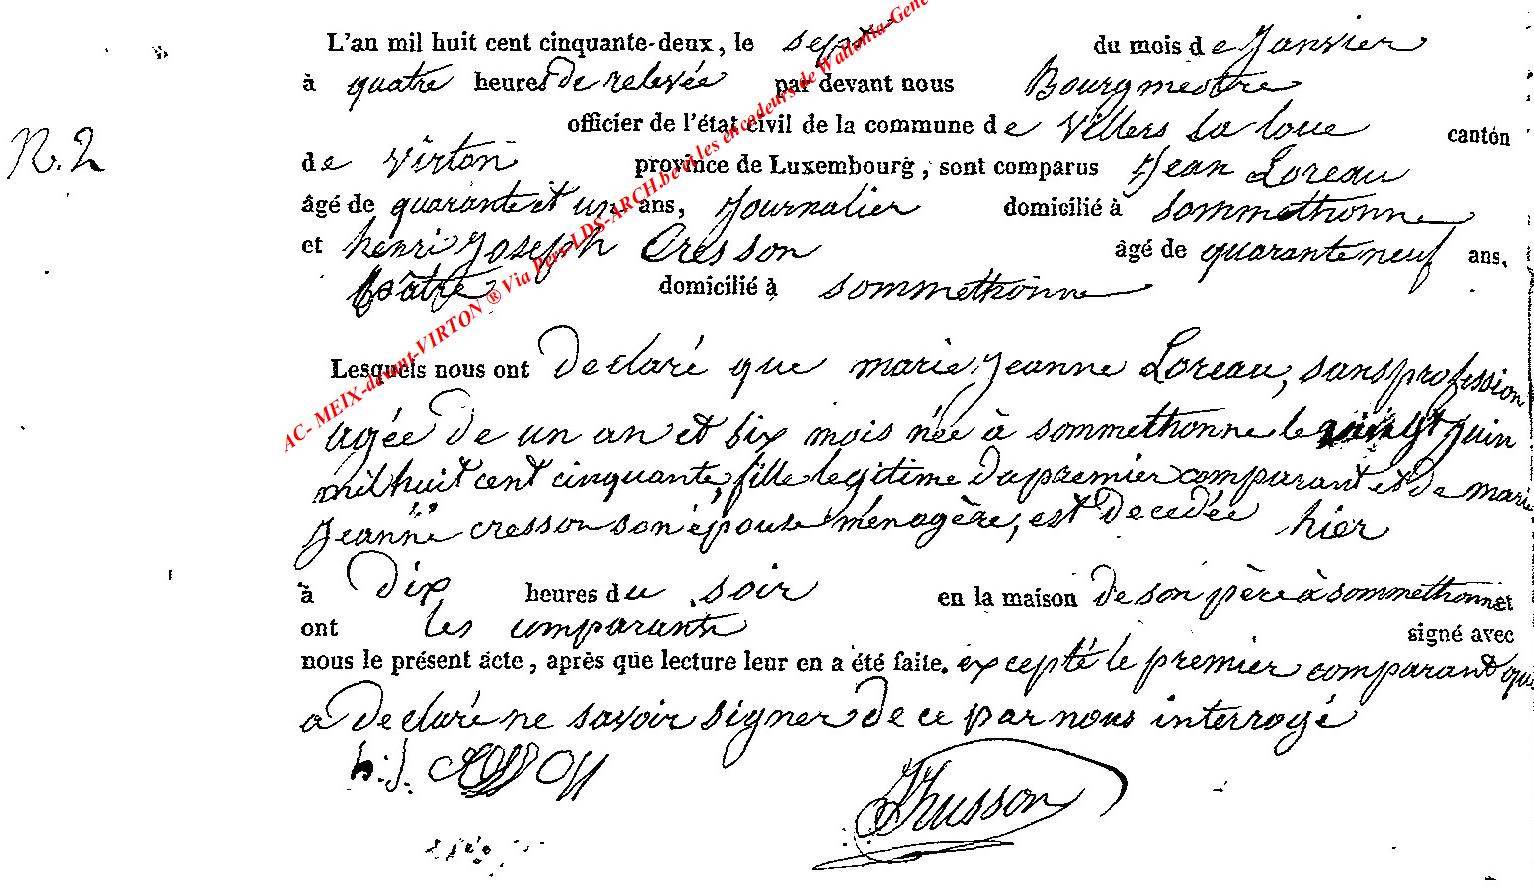 L'an mil huit cent cinquante-deux, le sept du mois de Janvier
à quatre heures de relevée par devant nous Bourgmestre
officier de l'état civil de la commune de Villers la loue canton
N. 2
de Virton province de Luxembourg, sont comparus Jean Loreau
âgé de quarante et un ans, Journalier domicilié à sommethonne
et henri Joseph Cresson âgé de quarante neuf ans,
pâtre domicilié à sommethonne
Lesquels nous ont declaré que marie Jeanne Loreau, sans profession
agée de un an et six mois née à sommethonne le vingt juin
mil huit cent cinquante, fille legitime du premier comparant et de marie
Jeanne cresson son épouse ménagère, est decedée hier
à dix heures du soir en la maison de son père à sommethonne et
ont les comparants signé avec
nous le présent acte, après que lecture leur en a été faite. excepté le premier comparant qui
a declaré ne savoir signer de ce par nous interrogé
h. j. Husson
AC- MEIX-devant-VIRTON ® Via Pers-LDS-ARCH.be et les encodeurs de Wallonia-Gene